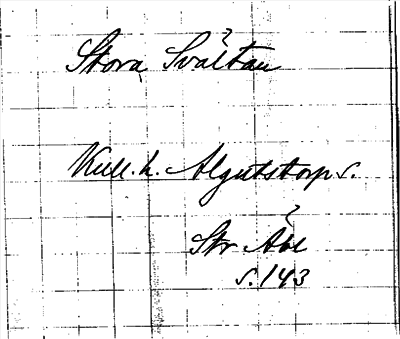 Stora Svältan
Kull. h. Algutstorps s.
Str Åbl
s. 143